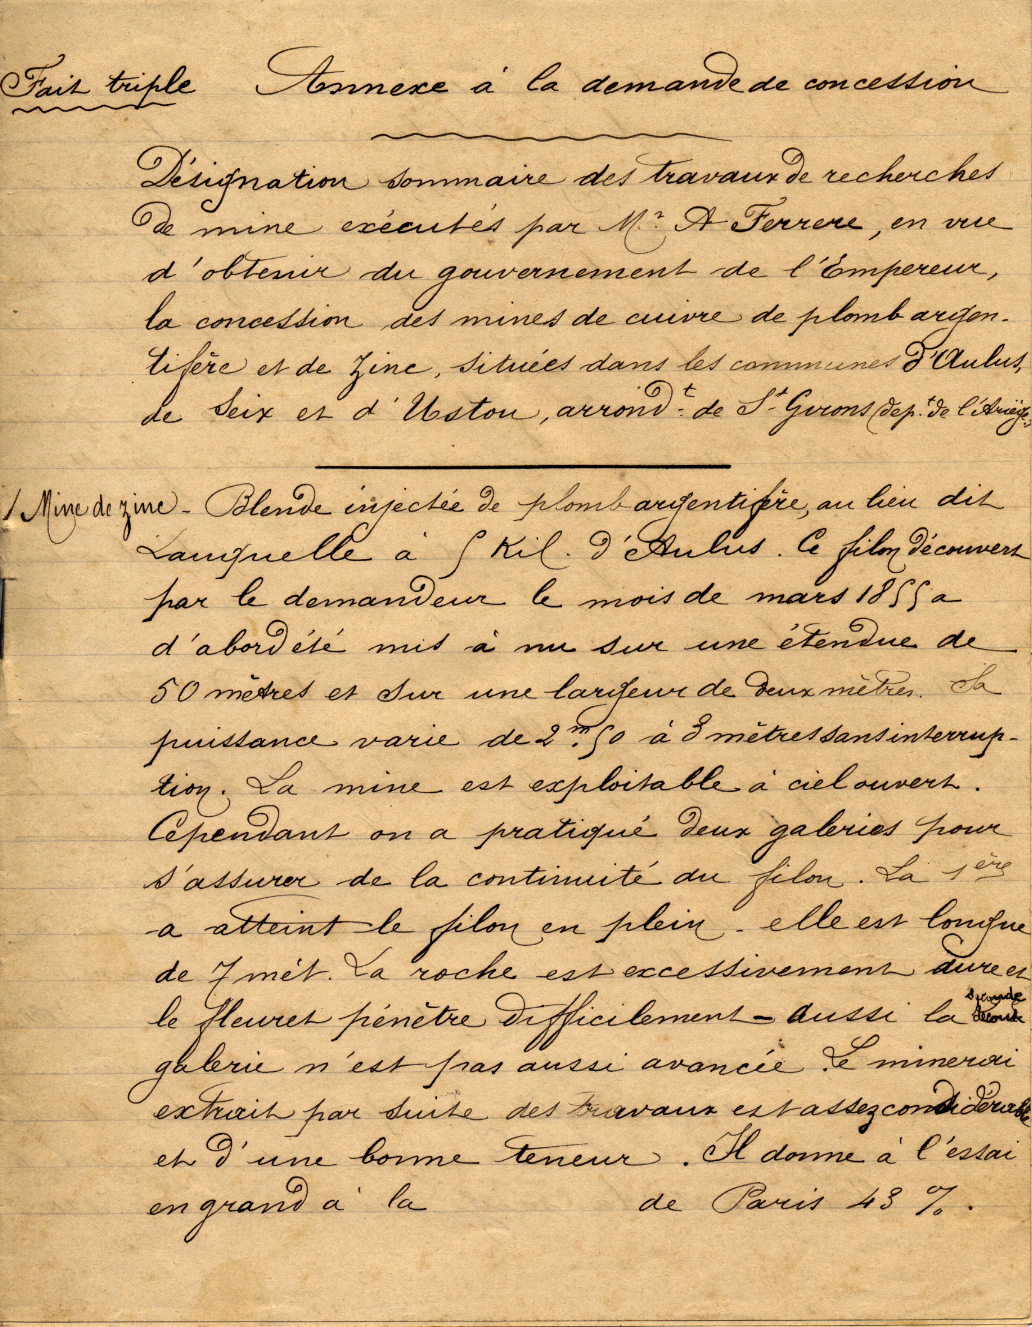 Fait triple Annexe à la demande de concession
Désignation sommaire des travaux de recherches
de mine exécutés par Mr. A Ferrere, en vue
d'obtenir du gouvernement de l'Empereur,
la concession des mines de cuivre de plomb argen-
tifère et de zinc, situées dans les communes d'Aulus,
de Seix et d'Ustou, arrondt. de St Girons (dept. de l'Ariège)
1 Mine de zinc - Blende injectée de plomb argentifère, au lieu dit
Lauquelle à 5 Kil. d'Aulus. Ce filon découvert
par le demandeur le mois de mars 1855 a
d'abord été mis à nu sur une étendue de
50 mètres et sur une largeur de deux mètres. Sa
puissance varie de 2m.50 à 3 mètres sans interrup-
tion. La mine est exploitable à ciel ouvert.
Cependant on a pratiqué deux galeries pour
s'assurer de la continuité du filon. La 1ère
a atteint le filon en plein - elle est longue
de 7 mèt. La roche est excessivement dure et
le fleuret pénètre difficilement - aussi la seconde
galerie n'est pas aussi avancée. Le minerai
extrait par suite des travaux est assez considérable
et d'une bonne teneur. Il donne à l'essai
en grand à la de Paris 43 %.